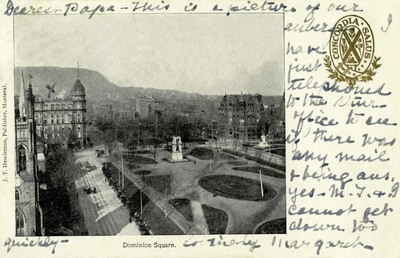 Dearest Papa - This is a picture of our
I
have
just
telephoned
to the
office to see
if there was
any mail
& being ans.
yes - M. J. & I
cannot get
down too
quickly -
Margaret -
CONCORDIA SALUS
J. T. Henderson, Publisher, Montreal.
Dominion Square.